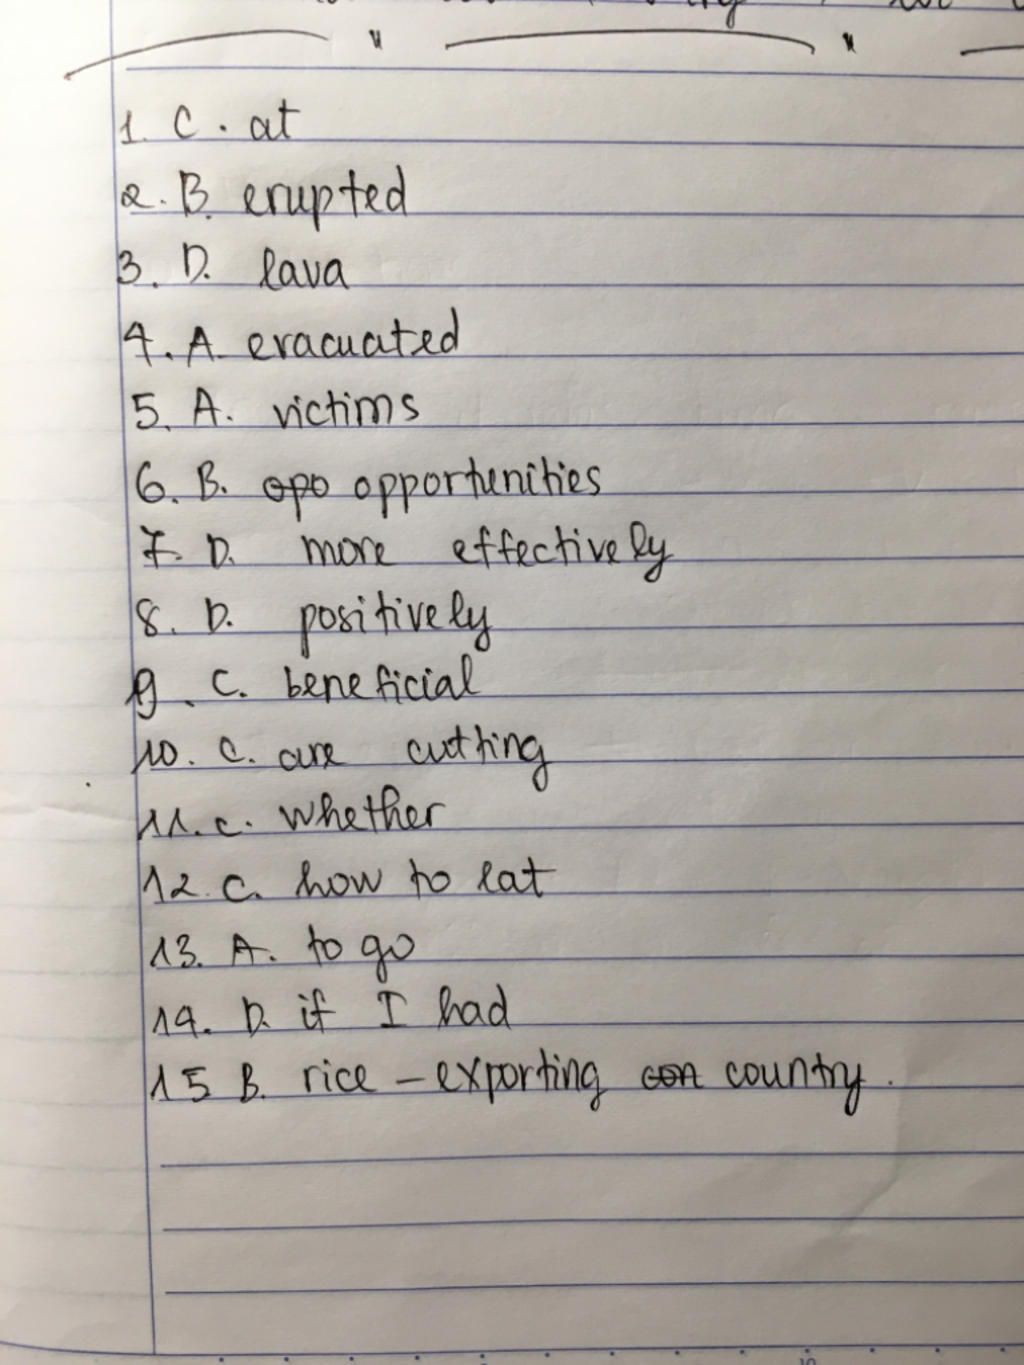 1. C. at
2. B. erupted
3. D. lava
4. A. evacuated
5. A. victims
6. B. opo opportunities
7. D. more effectively
8. D. positively
9. C. beneficial
10. C. are cutting
11. C. whether
12. C. how to eat
13. A. to go
14. D. if I had
15 B. rice - exporting con country.